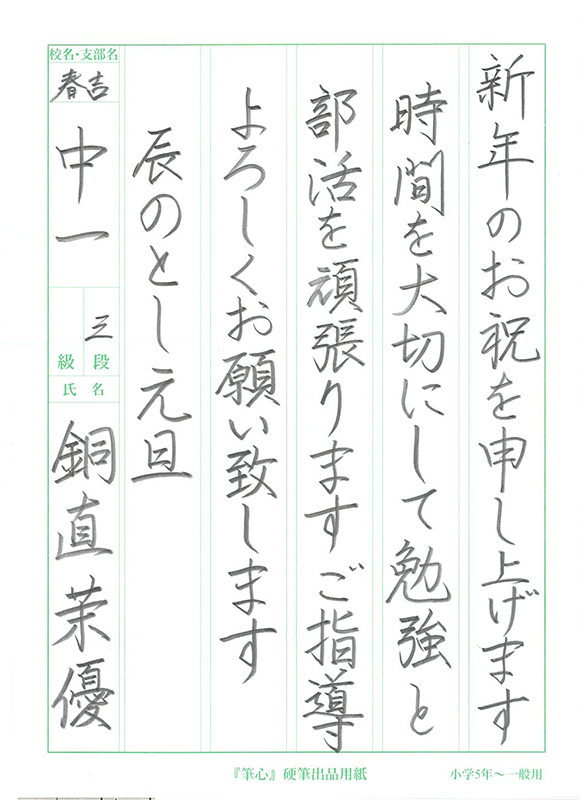 新年のお祝を申し上げます
時間を大切にして勉強と
部活を頑張りますご指導
よろしくお願い致します
辰のとし元旦
校名・支部名
春吉
中一
三
級 段
氏 名
銅直茉優
『筆心』硬筆出品用紙
小学5年〜一般用